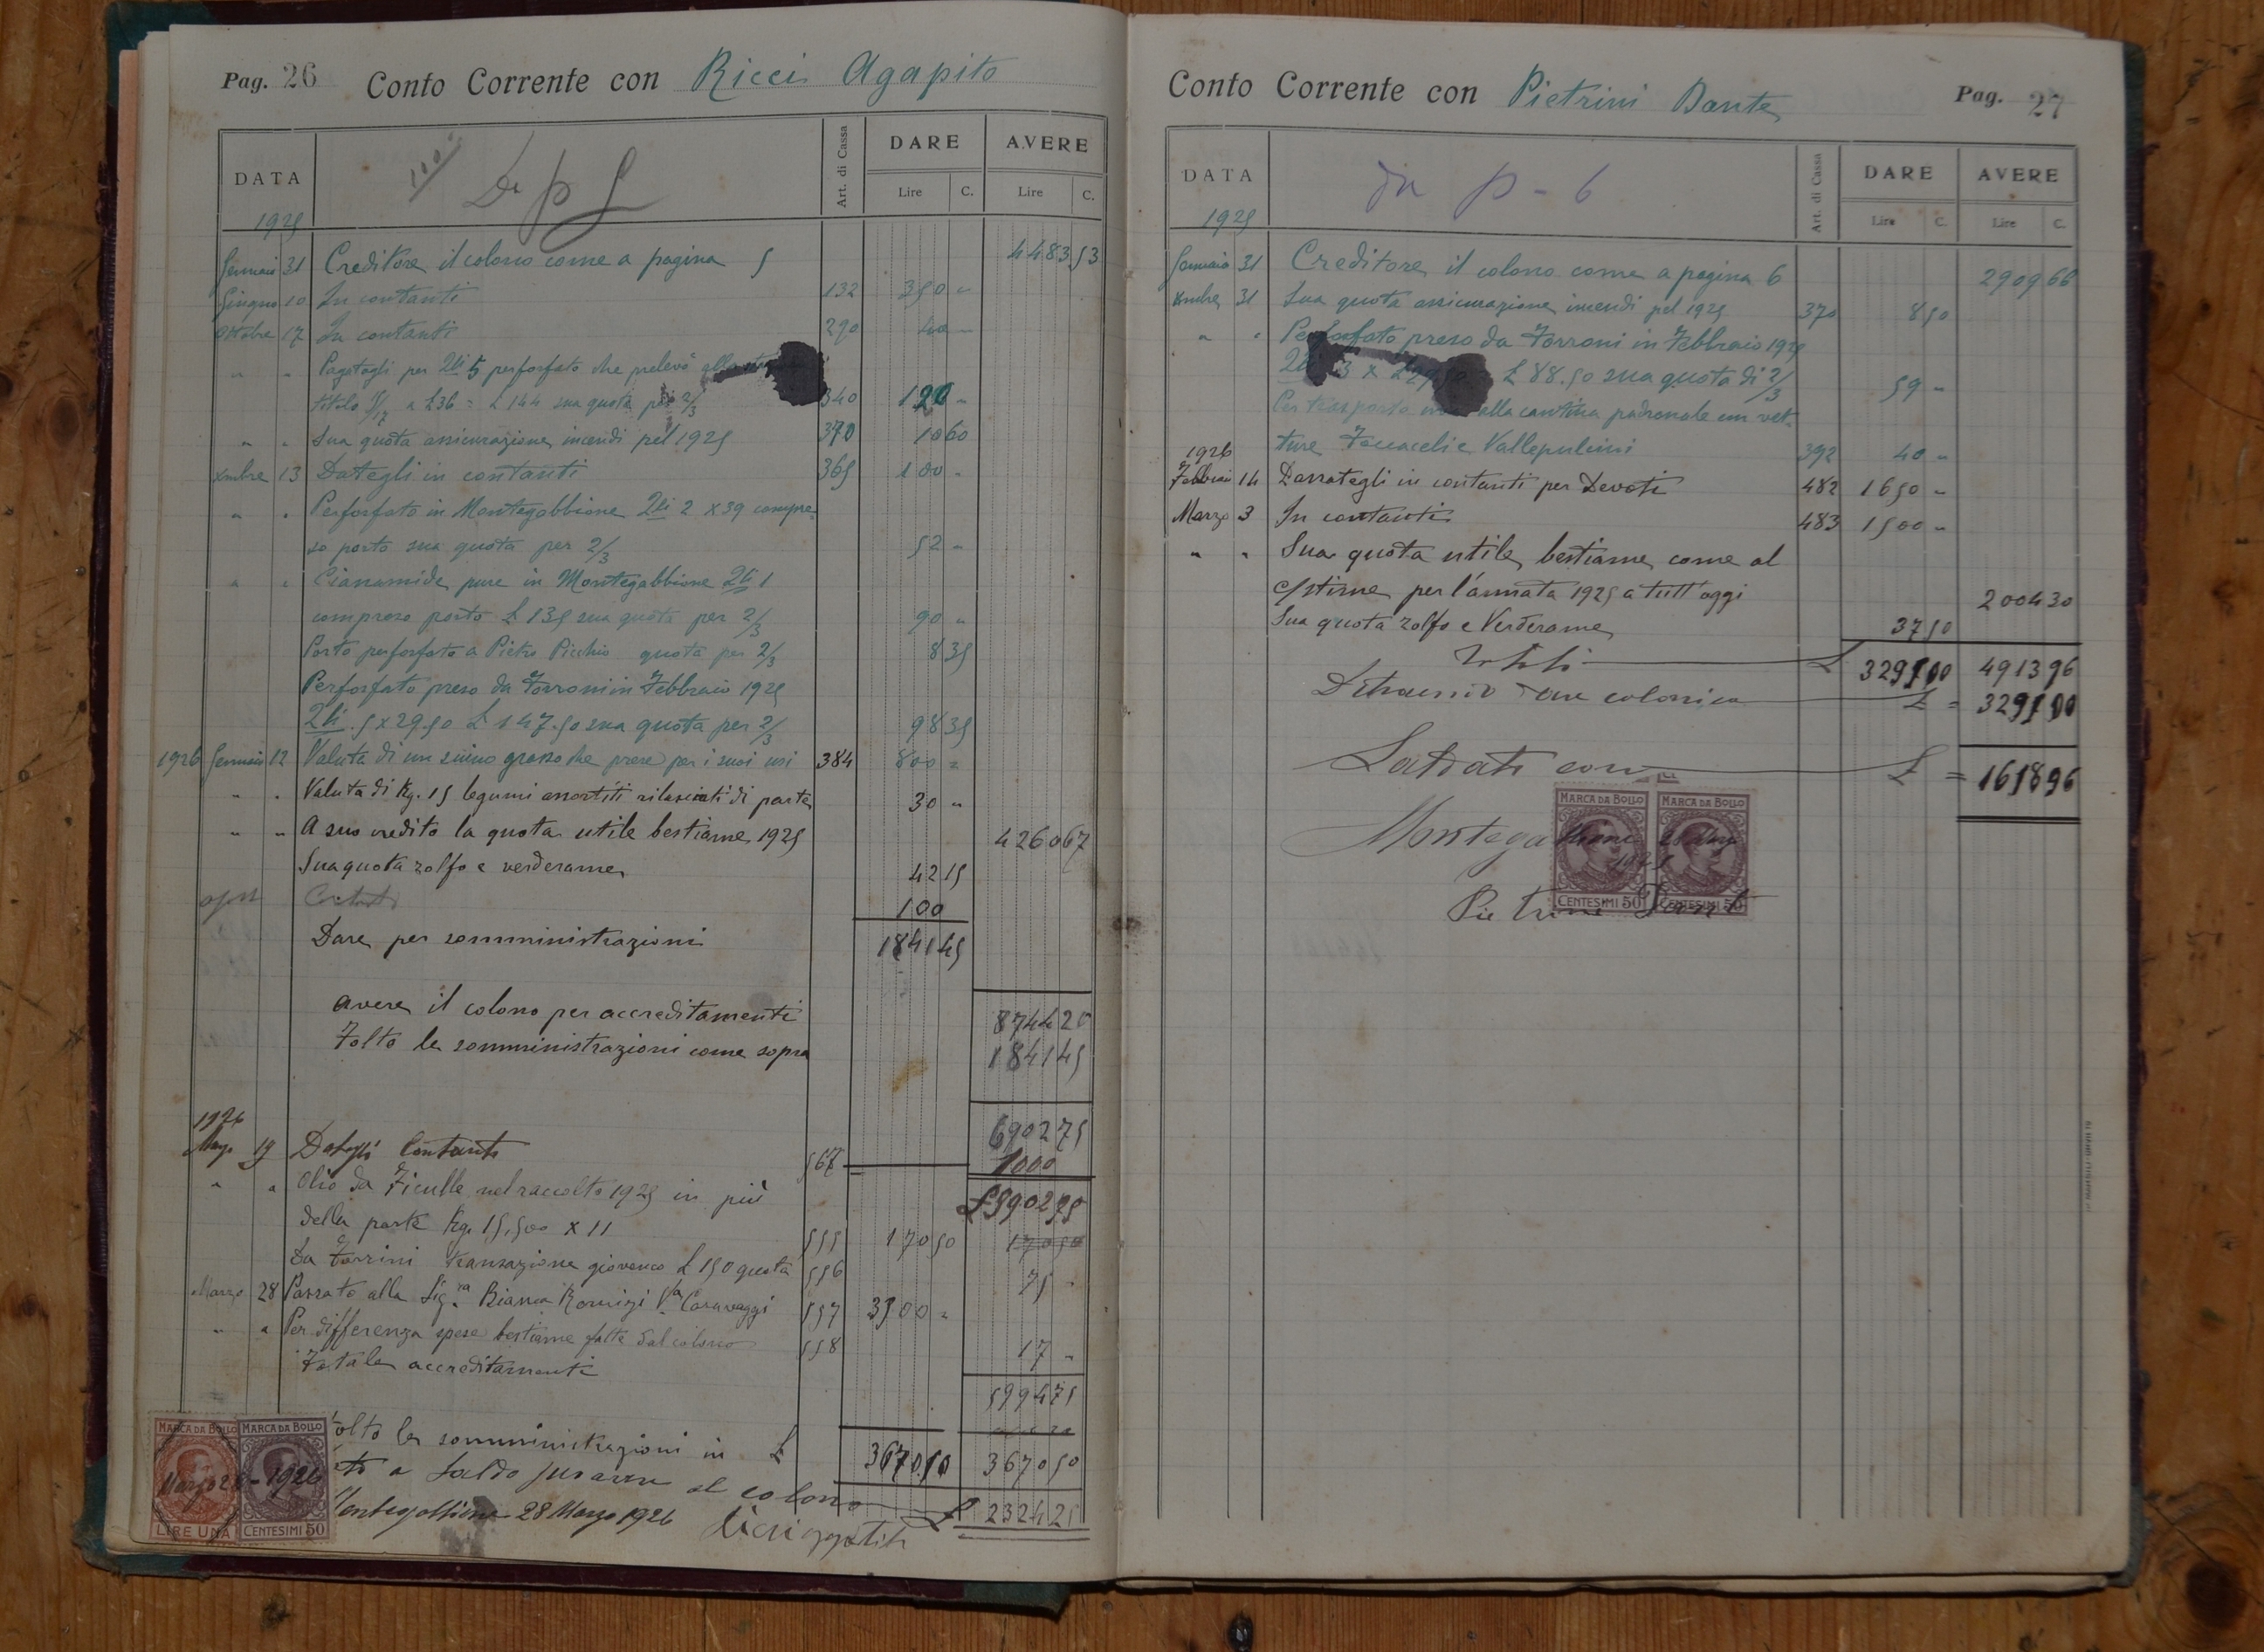 Pag. 26 Conto Corrente con Ricci Agapito
DATA Art. di Cassa DARE AVERE
Lire C. Lire C.
100 Da p 5
1925
Gennaio 31 Creditore il colono come a pagina 5 4483 53
Giugno 10 In contanti 132 350 "
Ottobre 17 In contanti 290 "
" " Pagatogli per Qli 5 perfosfato che prelevò
titolo a £ 36 = £ 144 sua quota per 2/3 340 120 "
" " Sua quota assicurazione incendi pel 1925 370 10 60
Xmbre 13 Dategli in contanti 365 100 "
" " Perfosfato in Montegabbione Qli 2 x 39 compre-
so porto sua quota per 2/3 52 "
" " Cianamide pure in Montegabbione Qli 1
compreso porto £ 135 sua quota per 2/3 90 "
Porto perfosfato a Pietro Picchio quota per 2/3 8 35
Perfosfato preso da Forroni in Febbraio 1925
Qli. 5 x 29.50 £ 147.50 sua quota per 2/3 98 35
1926 Gennaio 12 Valuta di un suino grasso che prese per i suoi usi 384 800 =
" " Valuta di Kg. 15 legumi assortiti rilasciati di parte 30 "
" " A suo credito la quota utile bestiame 1925 4260 67
Sua quota zolfo e verderame 42 15
Contanti 100
Dare per somministrazioni 1841 45
Avere il colono per accreditamenti 8744 20
Tolto le somministrazioni come sopra 1841 45
6902 75
1926
Marzo 19 Dategli Contanti 567 1000
£ 5902 75
" " Olio da Ficulle nel raccolto 1925 in più
della parte Kg. 15,500 x 11 555 170 50 170 50
Da Forrini transazione giovenco £ 150 quota 556 75 "
Marzo 28 Passato alla Sig.ra Bianca Romizi V.va Caravaggi 557 3500 "
" " Per differenza spese bestiame fatte dal colono 558 17 "
Totale accreditamenti
5994 75
MARCA DA BOLLO MARCA DA BOLLO
olto le somministrazioni in £ 3670.50 3670 50
Marzo 28-1926
a saldo al colono £ 2324 25
LIRE UNA CENTESIMI 50
Montegabbione 28 Marzo 1926
Conto Corrente con Pietrini Dante Pag. 27
DATA Art. di Cassa DARE AVERE
Lire C. Lire C.
da p - 6
1925
Gennaio 31 Creditore il colono come a pagina 6 2909 66
Xmbre 31 Sua quota assicurazione incendi pel 1925 370 8 50
" " Perfosfato preso da Forroni in Febbraio 1925
3 x £ 88.50 sua quota di 2/3 59 "
Per trasporto alla cantina padronale con vet-
ture Toccaceli e Vallepulcini 392 40 "
1926
Febbraio 14 Passategli in contanti per Devoti 482 1650 "
Marzo 3 In contanti 483 1500 "
" " Sua quota utile bestiame come al
Estimo per l'annata 1925 a tutt'oggi 2004 30
Sua quota zolfo e Verderame 37 50
Totali £ 3295 00 4913 96
Detraendo Dare colonica £ = 3295 00
Saldati con £ = 1618 96
MARCA DA BOLLO MARCA DA BOLLO
Montegabbione 28 Marzo
CENTESIMI 50 CENTESIMI 50
Pietrini Dante